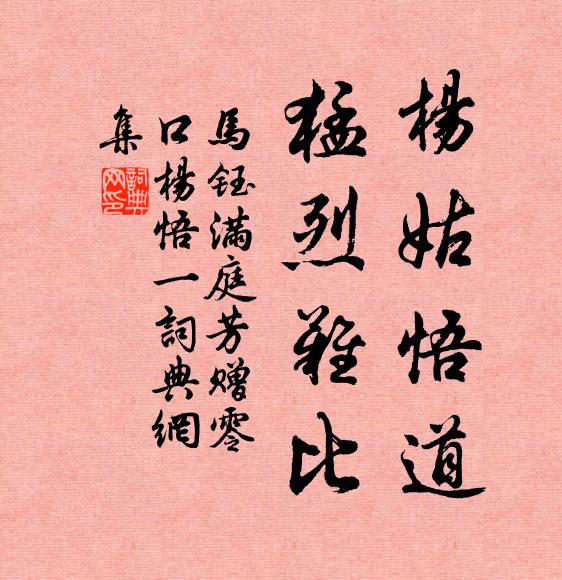 楊姑悟道
猛烈難比
馬鈺滿庭芳贈零
口楊悟一詞典網
集
詞典网印